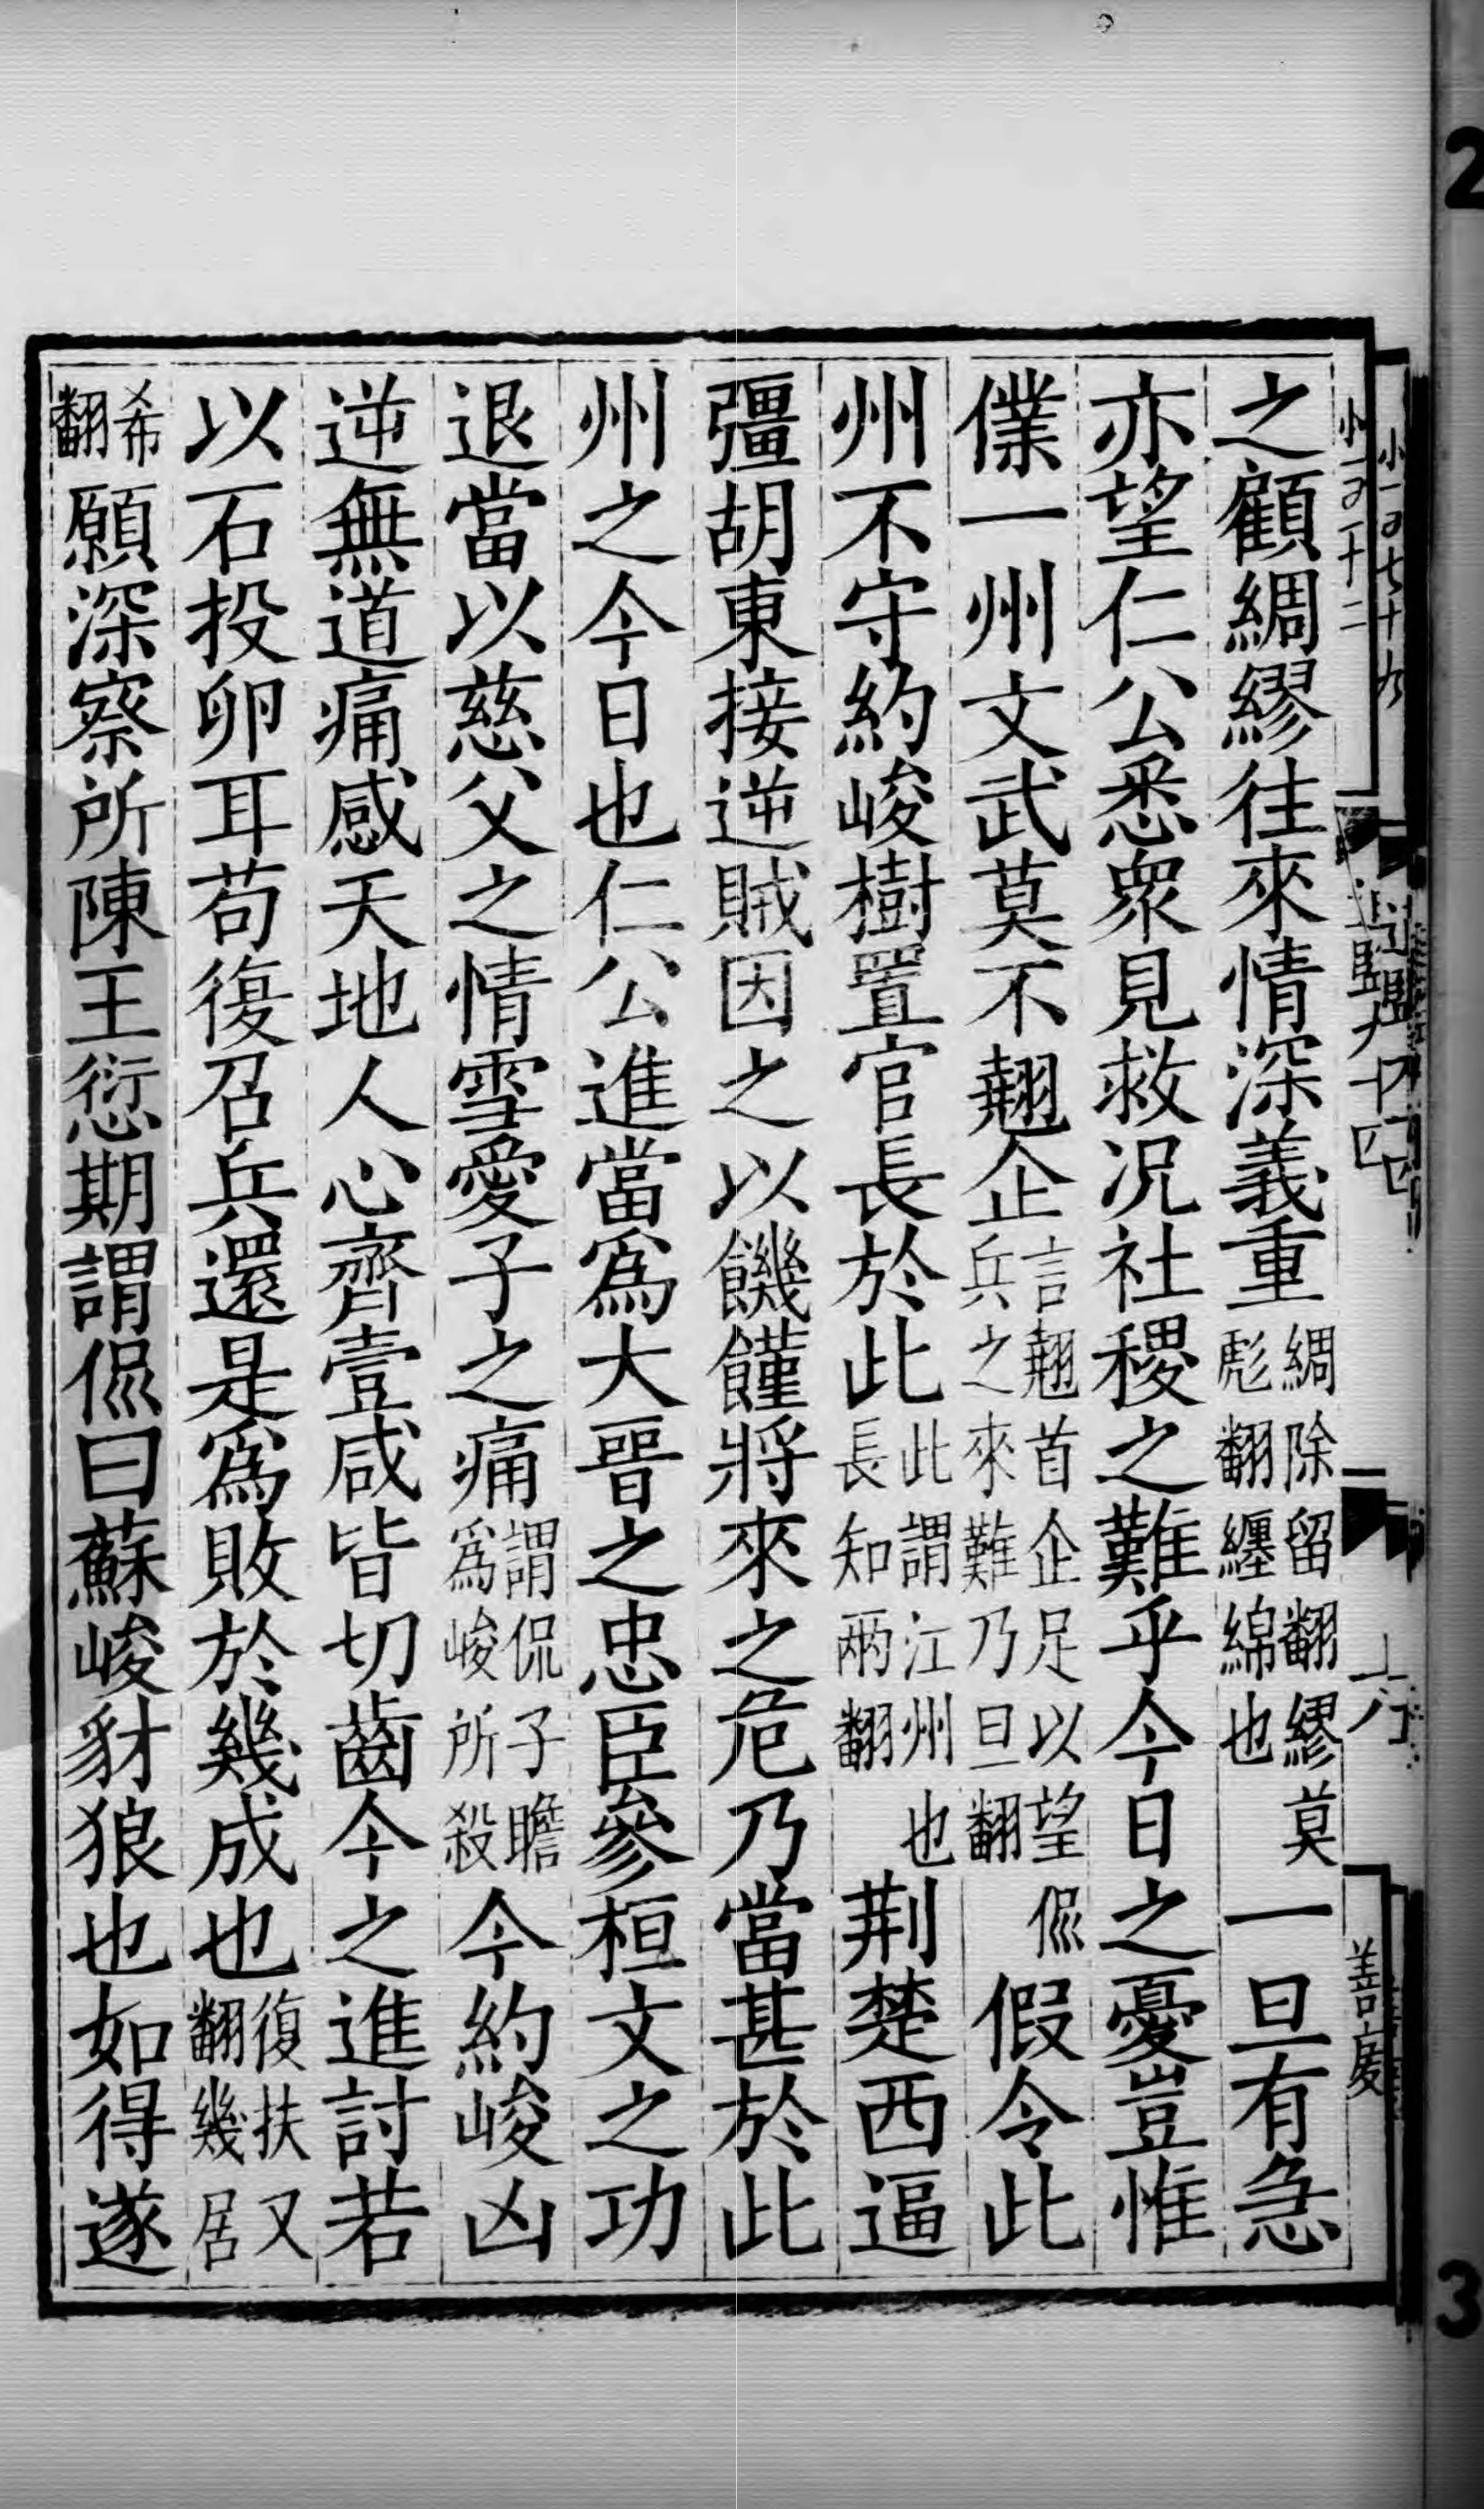 之顧綢繆往來情深義重綢除留翻繆莫彪翻纏綿也一旦有急
亦望仁公悉衆見救况社稷之難乎今日之憂豈惟
僕一州文武莫不翹企言翹首企足以望侃兵之來難乃旦翻假令此
州不守約峻樹置官長於此此謂江州也長知兩翻荆楚西逼
彊胡東接逆賊因之以饑饉將來之危乃當甚於此
州之今日也仁公進當爲大晉之忠臣參桓文之功
退當以慈父之情雪愛子之痛謂侃子瞻爲峻所殺今約峻凶
逆無道痛感天地人心齊壹咸皆切齒今之進討若
以石投卵耳苟復召兵還是爲敗於幾成也復扶又翻幾居
希翻願深察所陳王愆期謂侃曰蘇峻豺狼也如得遂